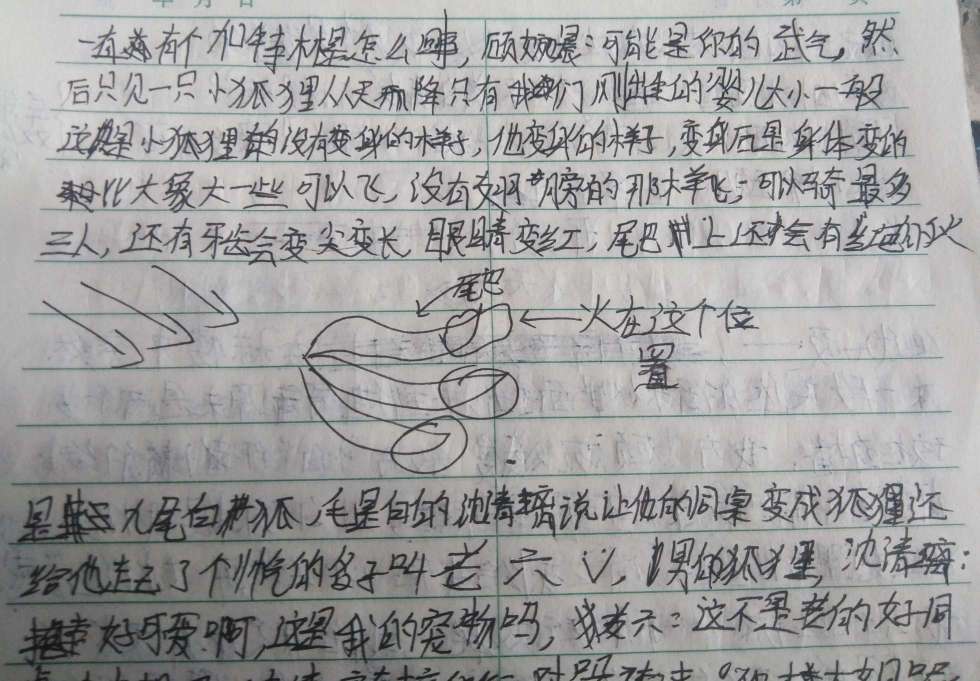 有个加特林是怎么回事,顾婉晨:可能是你的武气,然
后只见一只小狐狸从天而降只有我们刚出生的婴儿大小一般
这是小狐狸的没有变身的样子,他变身的样子,变身后是身体变的
比大象大一些可以飞,没有支啊膀的那样飞,可以骑最多
三人,还有牙齿会变尖变长,眼睛变红,尾巴上还会有的火
尾巴
火在这个位
置
是九尾白狐,毛是白的沈清说让他的同桌变成狐狸还
给他起了个的名子叫老六,狐狸,沈清:
好可爱啊,这是我的宠物吗,老六:这不是老的好同